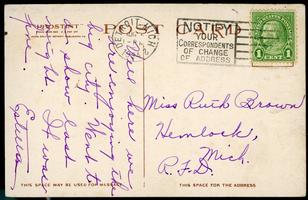 POST CARD
DETROIT, MICH. 2
NOTIFY
YOUR
CORRESPONDENTS
OF CHANGE
OF ADDRESS
1 CENT 1
Well here we
are enjoying the
big city. Went to
a show last
night. It was
fine.
Estella
Miss Ruth Brown
Hemlock,
Mich.
R.F.D.
THIS SPACE MAY BE USED FOR MESSAGE
THIS SPACE IS FOR THE ADDRESS